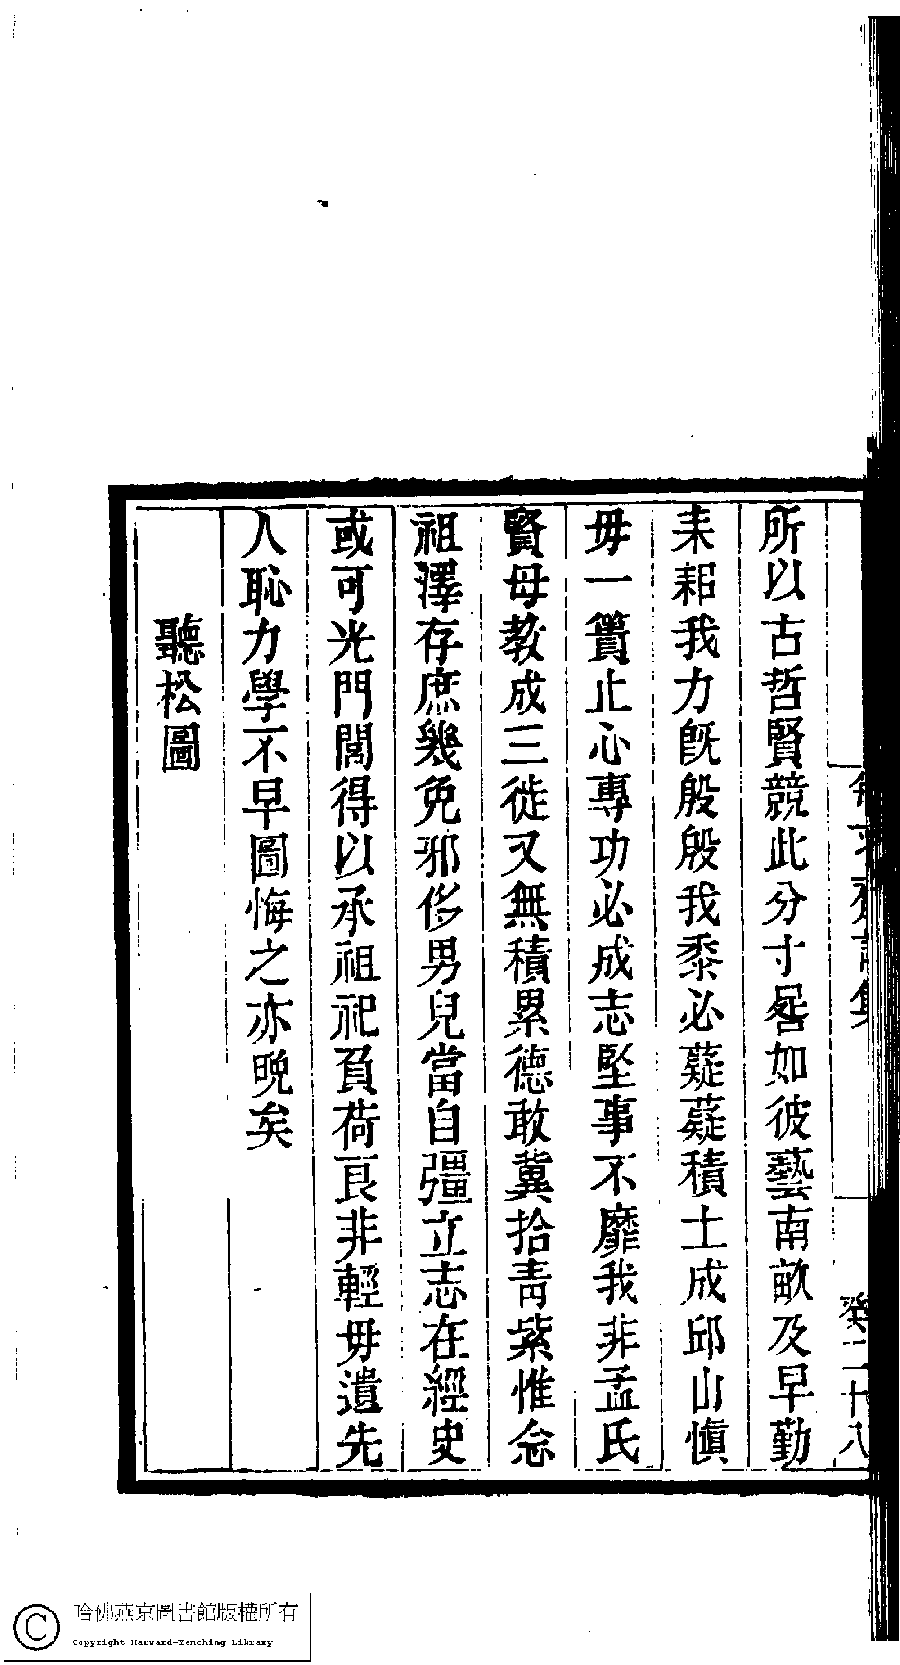 癸二十八
所以古哲賢競此分寸晷如彼藝南畝及早勤
耒耜我力旣殷殷我黍必薿薿積土成邱山愼
毋一簣止心專功必成志堅事不靡我非孟氏
賢母教成三徙又無積累德敢冀拾青紫惟念
祖澤存庶幾免邪侈男兒當自彊立志在經史
或可光門閭得以承祖祀負荷良非輕毋遺先
人恥力學不早圖悔之亦晚矣
聽松圖
哈佛燕京圖書館版權所有
Copyright Harvard-Yenching Library